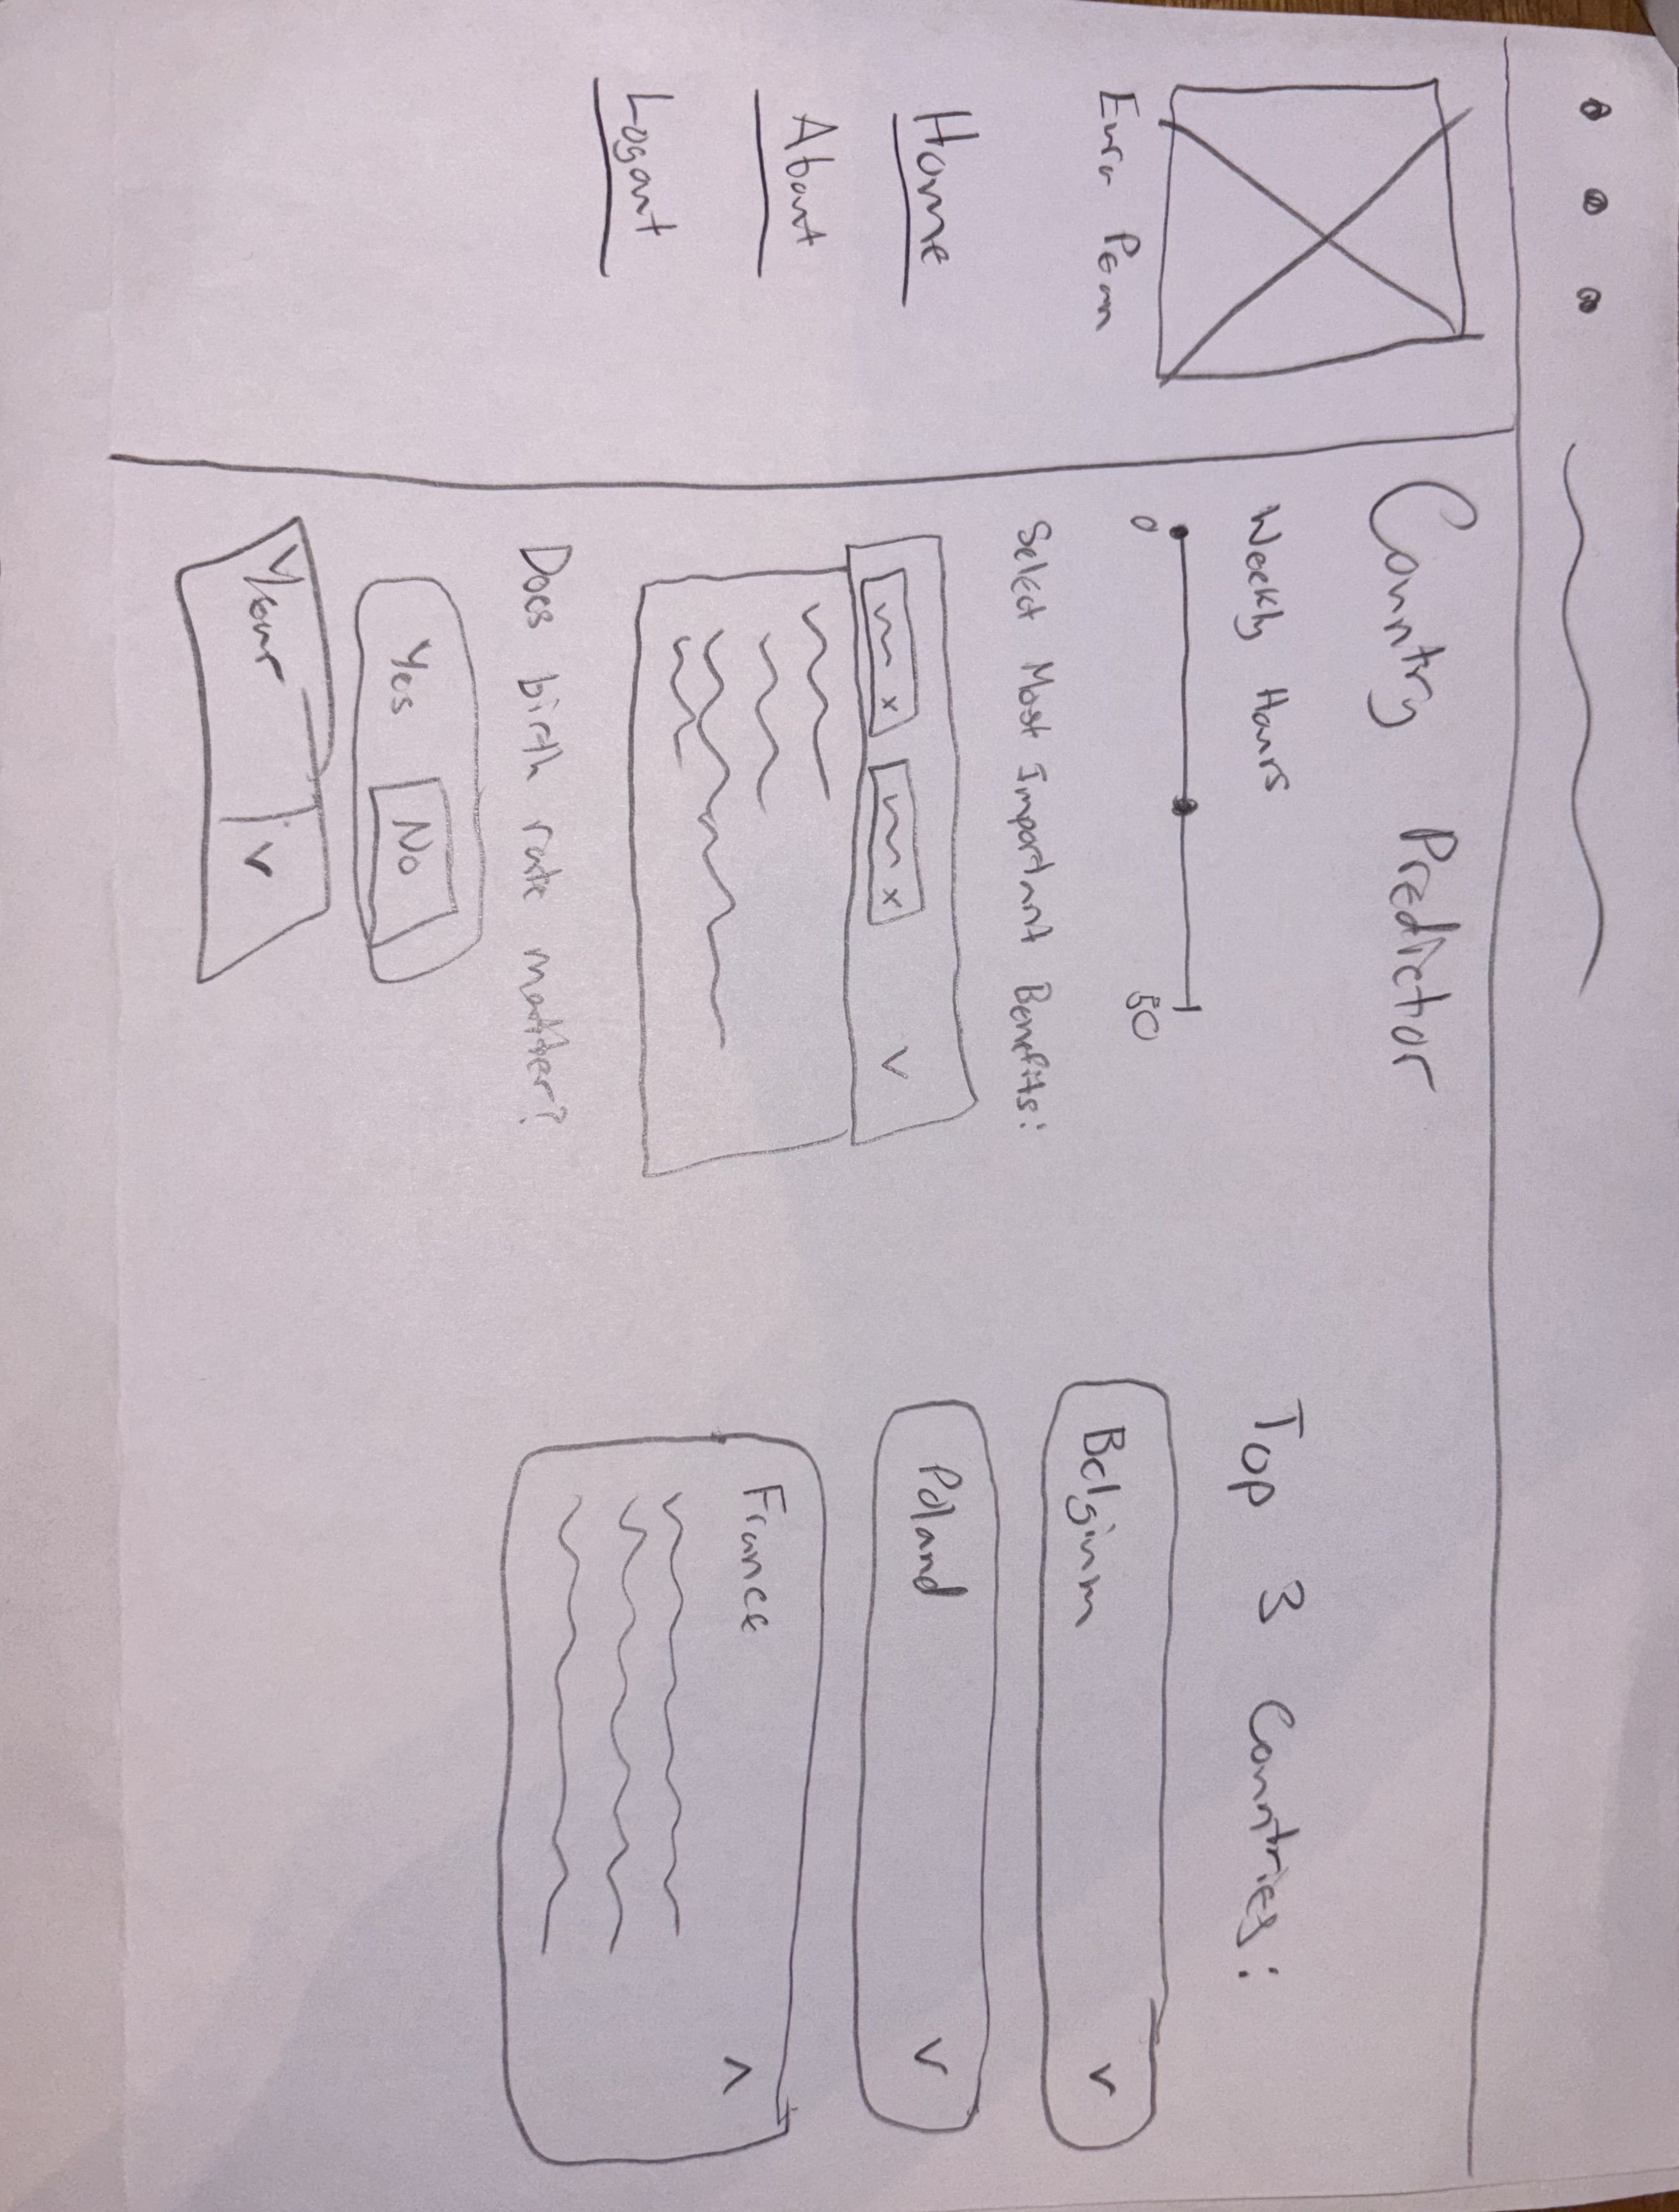 Euro Pean
Home
About
Logout
Country Predictor
Weekly Hours
0
50
Select Most Important Benefits:
x
x
Does birth rate matter?
Yes
No
Year
Top 3 Countries:
Belgium
Poland
France